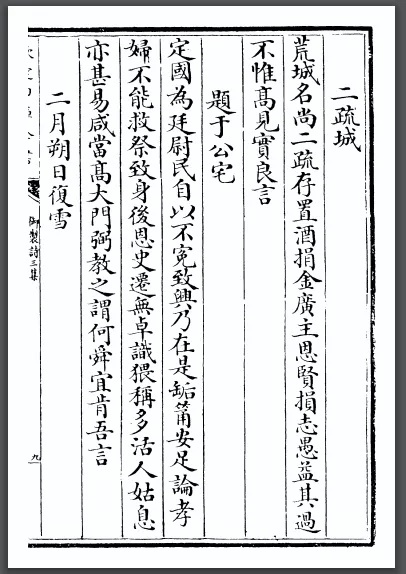 二疏城
荒城名尚二疏存置酒捐金廣主恩賢損志愚益其過
不惟髙見實良言
題于公宅
定國為廷尉民自以不寃致興乃在是缿筩安足論孝
婦不能救祭致身後恩史遷無卓識猥稱多活人姑息
亦甚易咸當髙大門弼教之謂何舜宜肯吾言
二月朔日復雪
御製詩三集
九